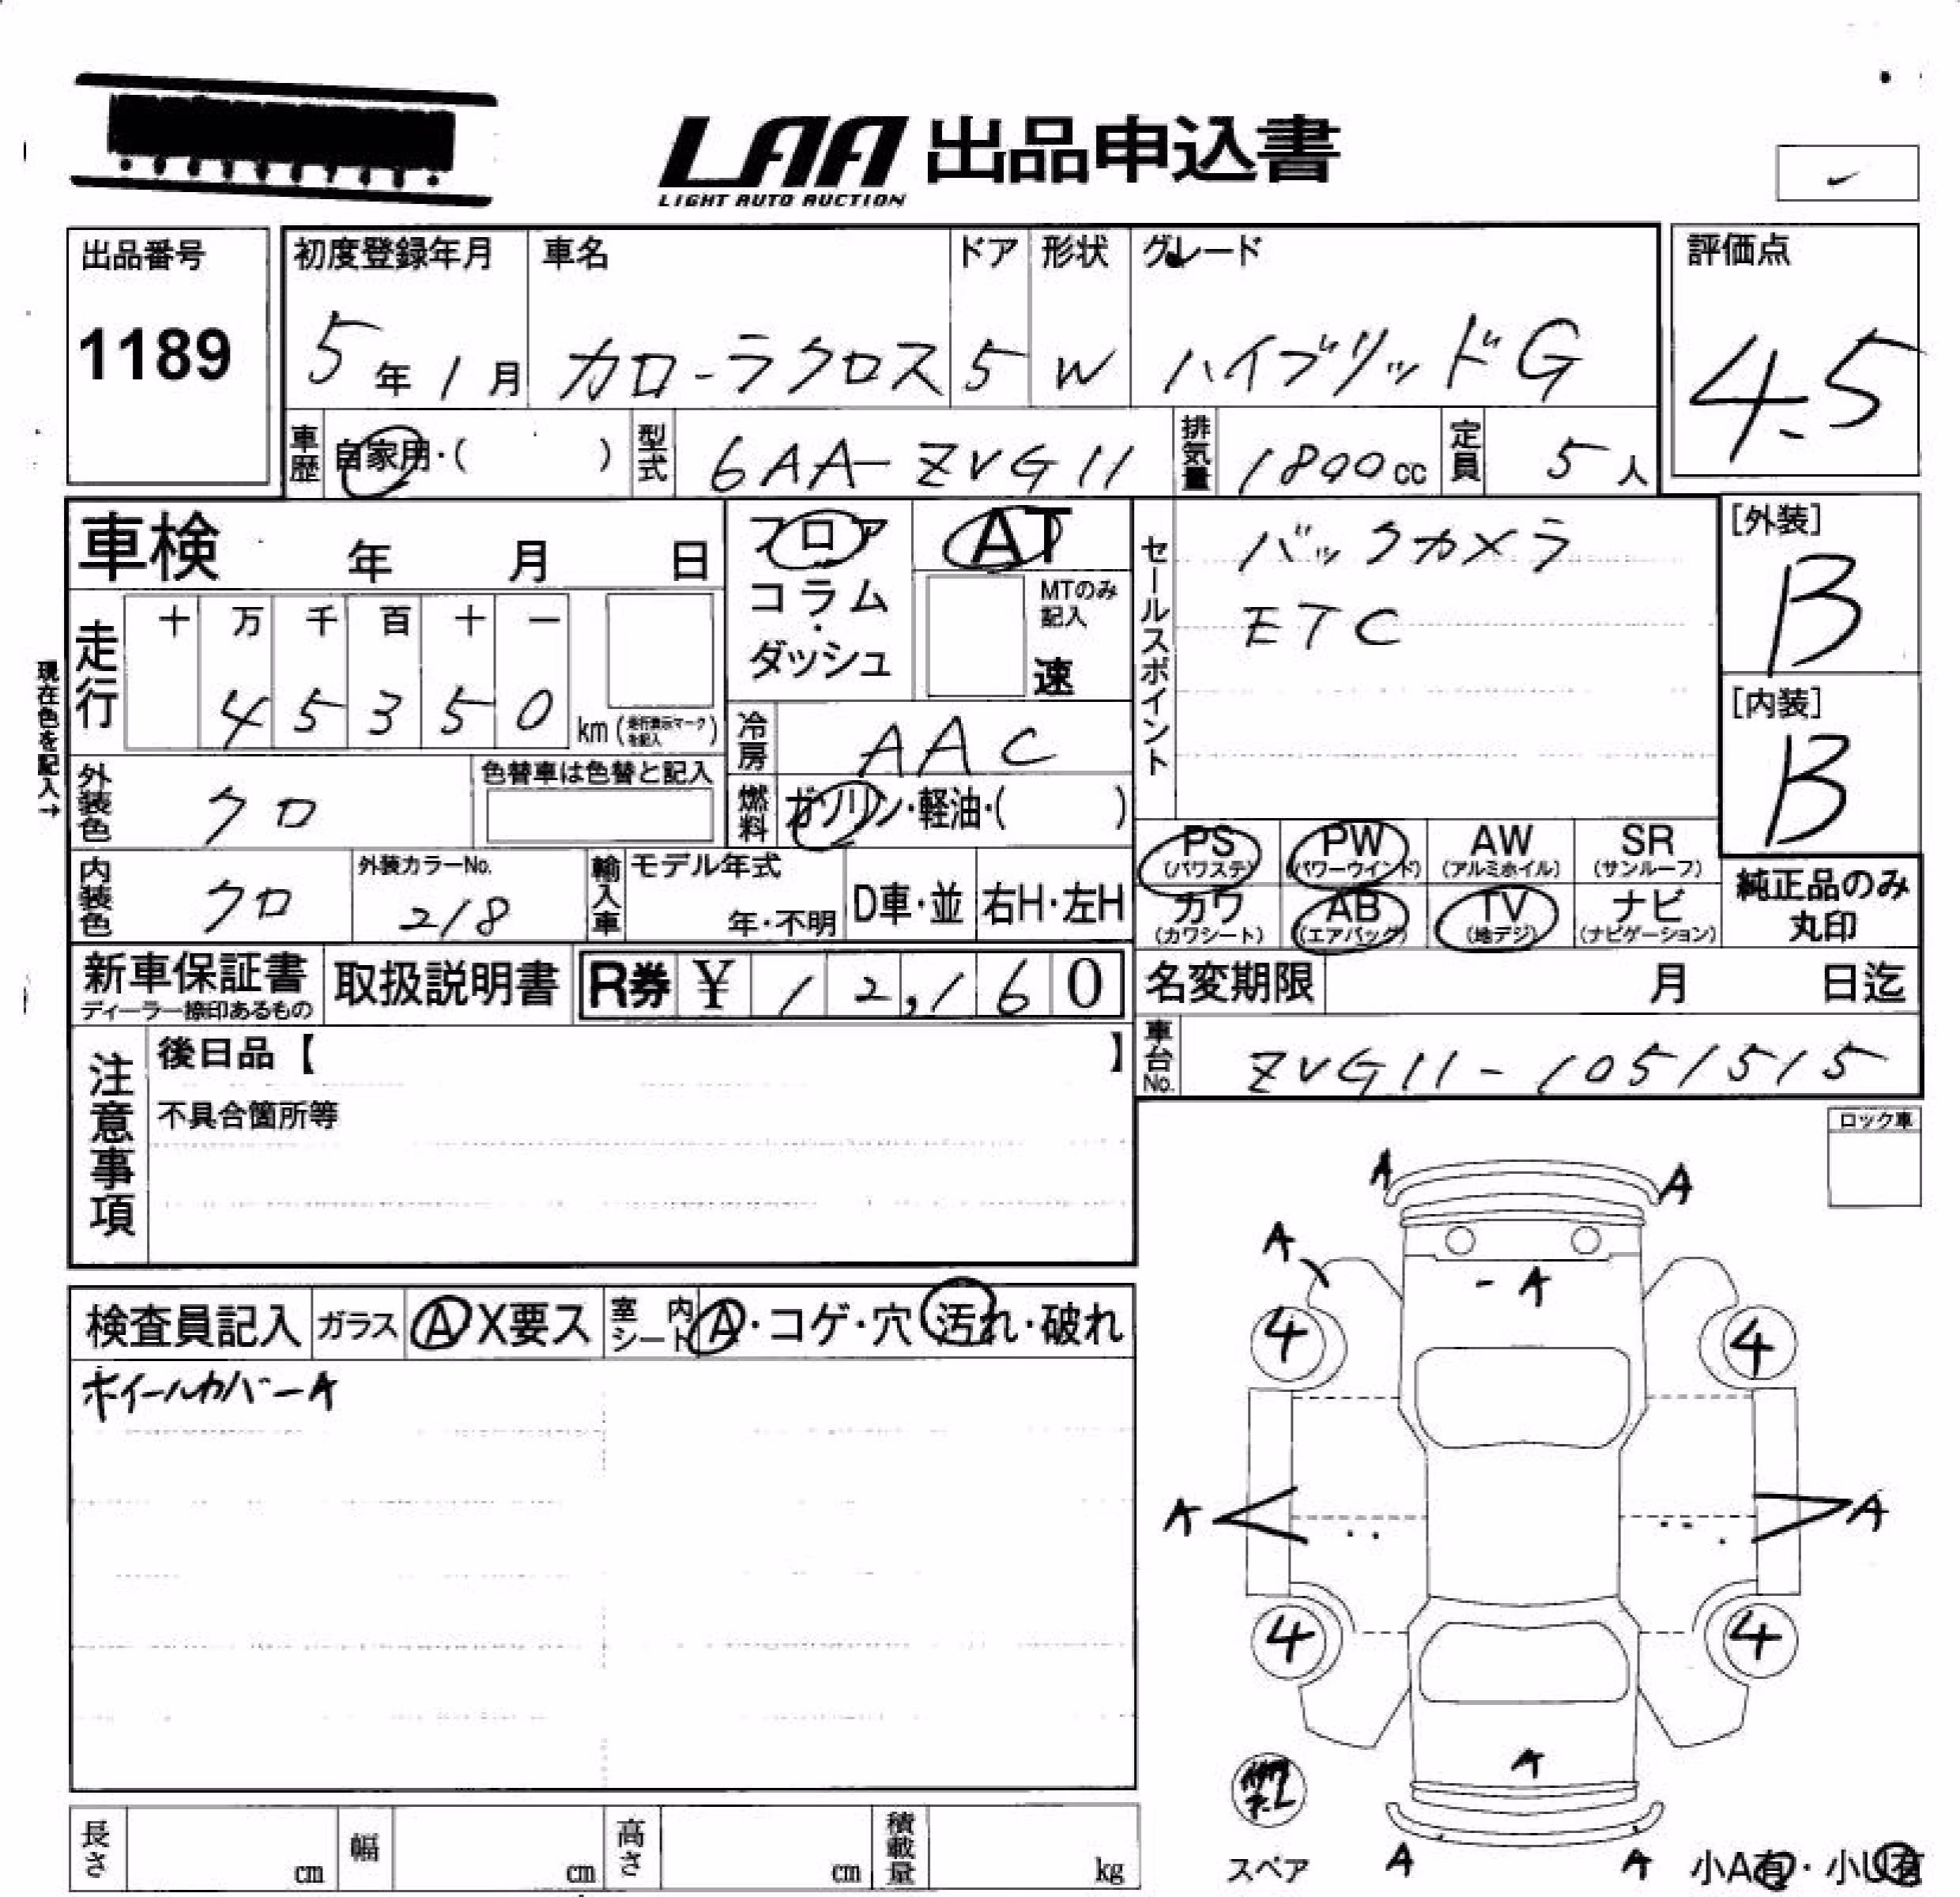 LAA 出品申込書
LIGHT AUTO AUCTION
出品番号
1189
初度登録年月
5年1月
車名
カローラクロス
ドア
5
形状
W
グレード
ハイブリッドG
評価点
4.5
車歴
自家用・( )
型式
6AA-ZVG11
排気量
1800cc
定員
5人
車検 年 月 日
走行
十 万 千 百 十 一
4 5 3 5 0 km(走行表示マークを記入)
現在色を記入→
フロア
コラム・
ダッシュ
AT
MTのみ
記入
速
冷房
AAC
燃料
ガソリン・軽油・( )
外装色
クロ
色替車は色替と記入
内装色
クロ
外装カラーNo.
218
輸入車
モデル年式
年・不明
D車・並
右H・左H
セールスポイント
バックカメラ
ETC
[外装]
B
[内装]
B
PS
(パワステ)
PW
(パワーウインド)
AW
(アルミホイル)
SR
(サンルーフ)
カワ
(カワシート)
AB
(エアバッグ)
TV
(地デジ)
ナビ
(ナビゲーション)
純正品のみ
丸印
新車保証書
ディーラー捺印あるもの
取扱説明書
R券 ¥ 12,160
名変期限 月 日迄
車台No.
ZVG11-1051515
注意事項
後日品【 】
不具合箇所等
ロック車
検査員記入
ガラス
A X要ス
室内
シート
A・コゲ・穴 汚れ・破れ
ホイールカバーA
A A
A
A
4 4
A A
4 4
A
スペア
A A
小A有・小U有
長さ cm
幅 cm
高さ cm
積載量 kg